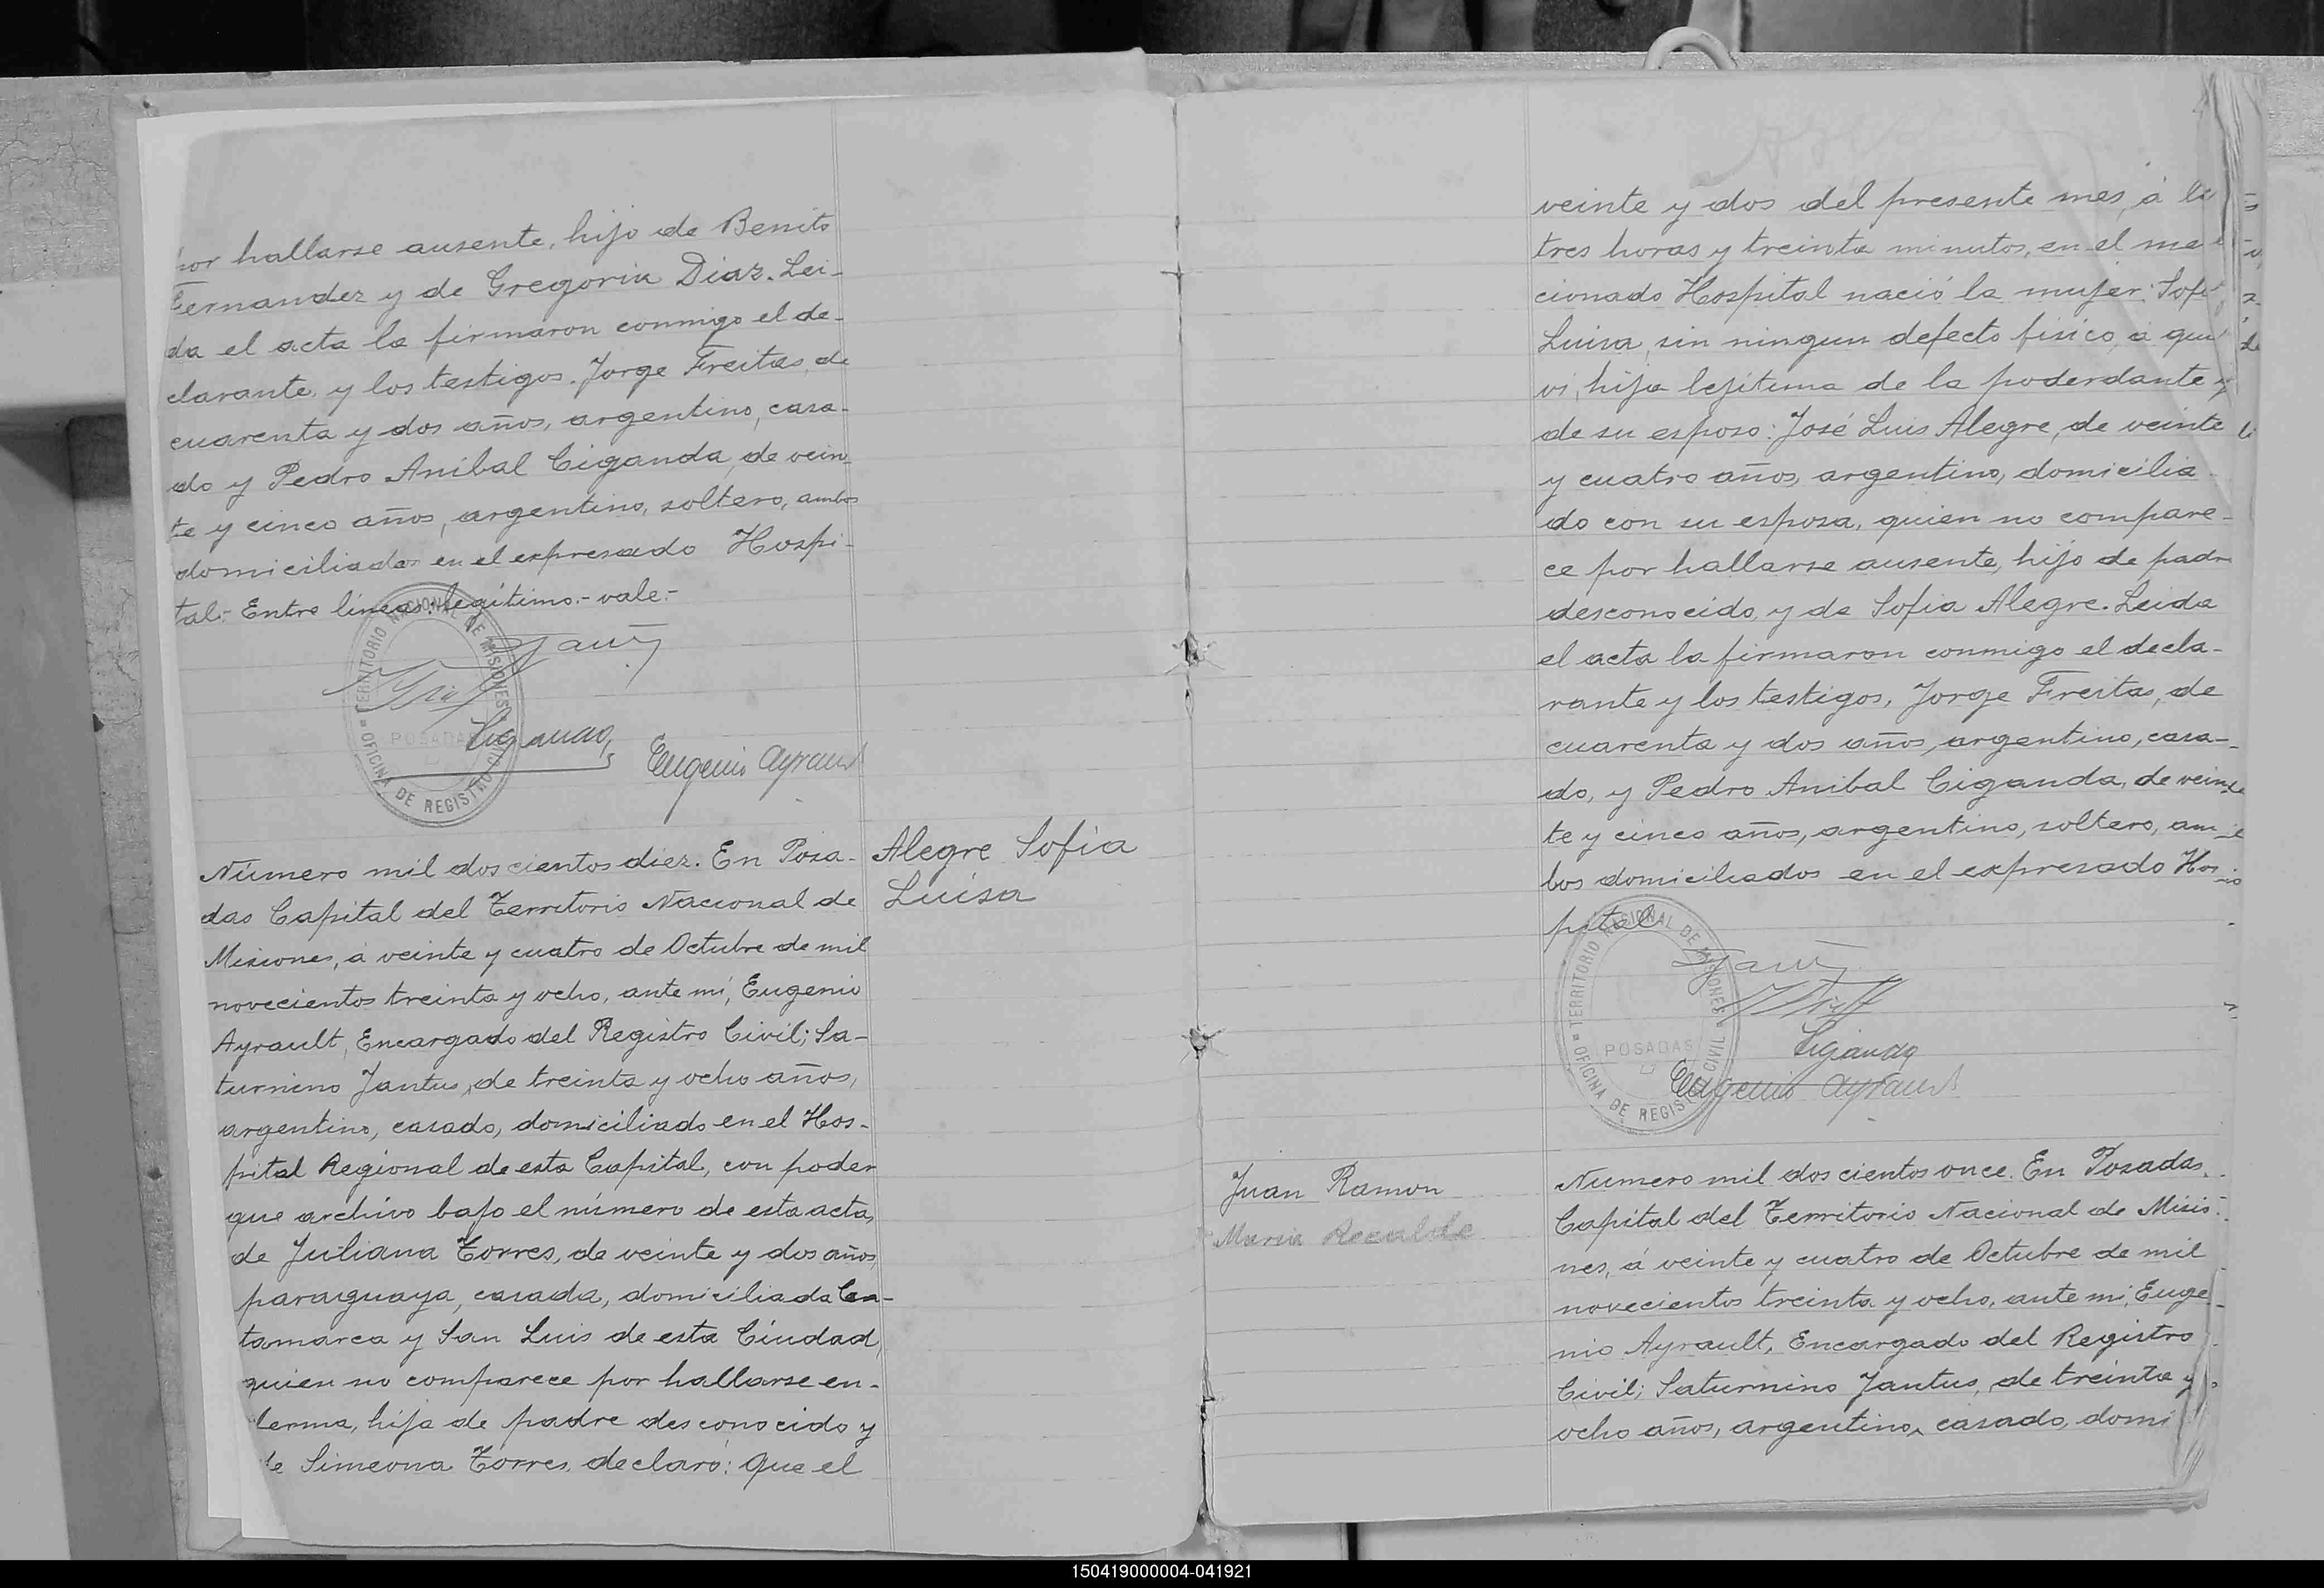 por hallarse ausente, hijo de Benito
Fernandez y de Gregoria Diaz. Lei-
da el acta la firmaron conmigo el de-
clarante, y los testigos. Jorge Freitas, de
cuarenta y dos años, argentino, casa-
do y Pedro Anibal Ciganda, de vein-
te y cinco años, argentino, soltero, ambos
domiciliados en el expresado Hospi-
tal.- Entre líneas: legítimo.- vale.-
TERRITORIO NACIONAL DE MISIONES
POSADAS
OFICINA DE REGISTRO CIVIL
Ciganda
Eugenio Ayrault
Número mil doscientos diez. En Posa-
das Capital del Territorio Nacional de
Misiones, á veinte y cuatro de Octubre de mil
novecientos treinta y ocho, ante mí, Eugenio
Ayrault, Encargado del Registro Civil; Sa-
turnino Jantus, de treinta y ocho años,
argentino, casado, domiciliado en el Hos-
pital Regional de esta Capital, con poder
que archivo bajo el número de esta acta,
de Juliana Torres, de veinte y dos años,
paraguaya, casada, domiciliada Ca-
tamarca y San Luis de esta Ciudad,
quien no comparece por hallarse en-
ferma, hija de padre desconocido y
de Simeona Torres, declaró: Que el
Alegre Sofia
Luisa
veinte y dos del presente mes, á la
tres horas y treinta minutos, en el me
cionado Hospital nació la mujer: Sofi
Luisa, sin ningun defecto físico, á qui
ví, hija lejítima de la poderdante y
de su esposo: José Luis Alegre, de veinte
y cuatro años, argentino, domicilia
do con su esposa, quien no compare-
ce por hallarse ausente, hijo de padre
desconocido, y de Sofia Alegre. Leida
el acta la firmaron conmigo el decla-
rante y los testigos, Jorge Freitas, de
cuarenta y dos años, argentino, casa-
do, y Pedro Anibal Ciganda, de vein-
te y cinco años, argentino, soltero, am-
bos domiciliados en el expresado Hos-
pital
TERRITORIO NACIONAL DE MISIONES
POSADAS
OFICINA DE REGISTRO CIVIL
Ciganda
Eugenio Ayrault
Juan Ramon
Maria Recalde
Numero mil doscientos once. En Posadas,
Capital del Territorio Nacional de Misio-
nes, á veinte y cuatro de Octubre de mil
novecientos treinta y ocho, ante mi, Euge
nio Ayrault, Encargado del Registro
Civil; Saturnino Jantus, de treinta y
ocho años, argentino, casado, domi
150419000004-041921